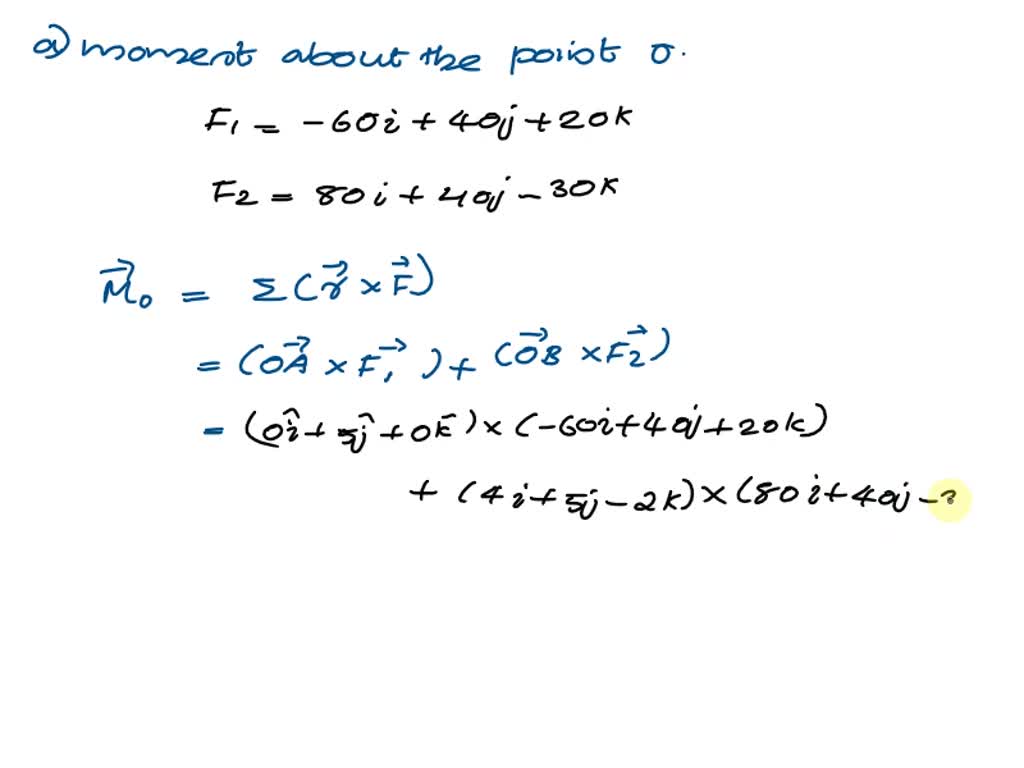 a) moment about the point o.
F₁ = -60i + 40j + 20k
F₂ = 80i + 40j - 30k
M⃗₀ = Σ(r⃗ × F⃗)
= (OA⃗ × F₁⃗) + (OB⃗ × F₂⃗)
= (0î + 5ĵ + 0k̄) × (-60i + 40j + 20k)
+ (4i + 5j - 2k) × (80i + 40j -